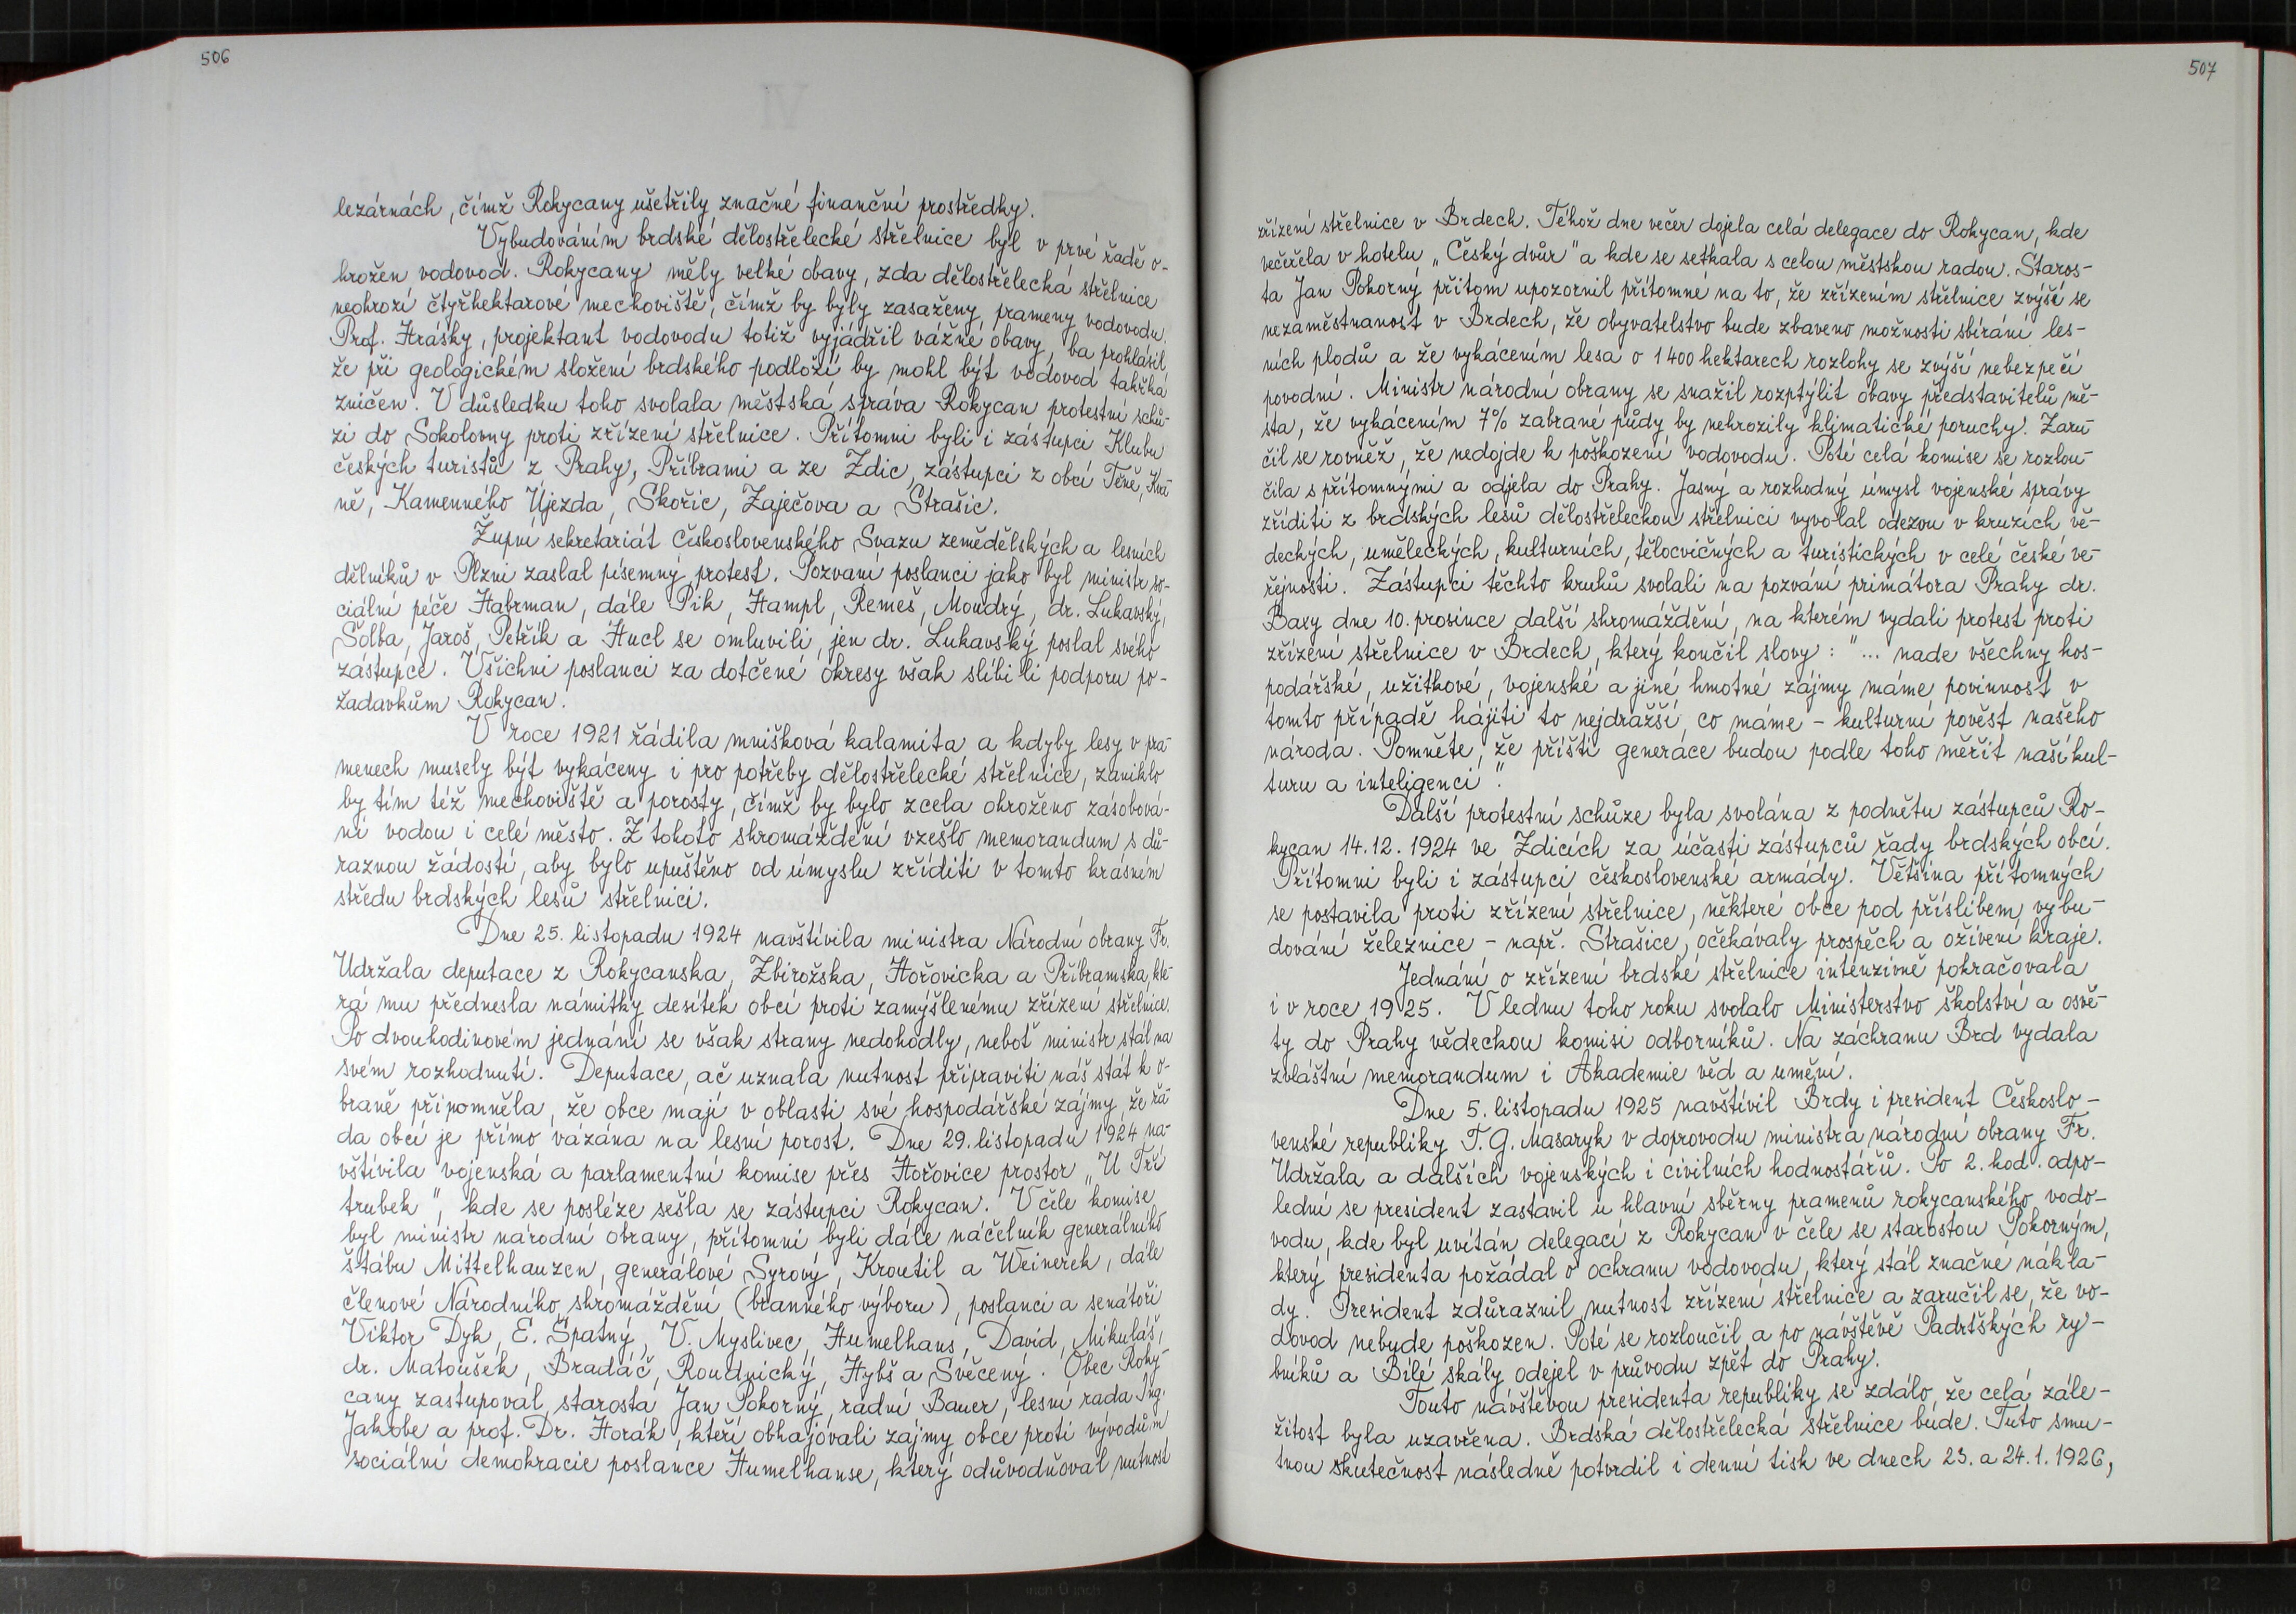 506
lezárnách, čímž Rokycany ušetřily značné finanční prostředky.
Vybudováním brdské dělostřelecké střelnice byl v prvé řadě o-
hrožen vodovod. Rokycany měly velké obavy, zda dělostřelecká střelnice
neohrozí čtyřhektarové mechoviště, čímž by byly zasaženy prameny vodovodu.
Prof. Hráský, projektant vodovodu totiž vyjádřil vážné obavy, ba prohlásil
že při geologickém složení brdského podloží by mohl být vodovod takřka
zničen. V důsledku toho svolala městská správa Rokycan protestní schů-
zi do Sokolovny proti zřízení střelnice. Přítomni byli i zástupci Klubu
českých turistů z Prahy, Příbrami a ze Zdic, zástupci z obcí Těně, Kva-
ně, Kamenného Újezda, Skořic, Zaječova a Strašic.
Župní sekretariát Československého Svazu zemědělských a lesních
dělníků v Plzni zaslal písemný protest. Pozvaní poslanci jako byl ministr so-
ciální péče Habrman, dále Pik, Hampl, Remeš, Moudrý, dr. Lukavský,
Šolba, Jaroš, Petřík a Hucl se omluvili, jen dr. Lukavský poslal svého
zástupce. Všichni poslanci za dotčené okresy však slíbili podporu po-
žadavkům Rokycan.
V roce 1921 řádila mnišková kalamita a kdyby lesy v pra-
menech musely být vykáceny i pro potřeby dělostřelecké střelnice, zaniklo
by tím též mechoviště a porosty, čímž by bylo zcela ohroženo zásobová-
ní vodou i celé město. Z tohoto shromáždění vzešlo memorandum s dů-
raznou žádostí, aby bylo upuštěno od úmyslu zříditi v tomto krásném
středu brdských lesů střelnici.
Dne 25. listopadu 1924 navštívila ministra Národní obrany Fr.
Udržala deputace z Rokycanska, Zbirožska, Hořovicka a Příbramska, kte-
rá mu přednesla námitky desítek obcí proti zamýšlenému zřízení střelnice.
Po dvouhodinovém jednání se však strany nedohodly, neboť ministr stál na
svém rozhodnutí. Deputace, ač uznala nutnost připraviti náš stát k o-
braně připomněla, že obce mají v oblasti své hospodářské zájmy, že řa-
da obcí je přímo vázána na lesní porost. Dne 29. listopadu 1924 na-
vštívila vojenská a parlamentní komise přes Hořovice prostor „U Tří
trubek", kde se posléze sešla se zástupci Rokycan. V čele komise
byl ministr národní obrany, přítomni byli dále náčelník generálního
štábu Mittelhauzen, generálové Syrový, Kroutil a Weinerek, dále
členové Národního shromáždění (branného výboru), poslanci a senátoři
Viktor Dyk, E. Špatný, V. Myslivec, Humelhans, David, Mikuláš,
dr. Matoušek, Bradáč, Roudnický, Hybš a Svěcený. Obec Roky-
cany zastupoval starosta Jan Pokorný, radní Bauer, lesní rada Ing.
Jakobe a prof. Dr. Horák, kteří obhajovali zájmy obce proti vývodům
sociální demokracie poslance Humelhanse, který odůvodňoval nutnost
507
zřízení střelnice v Brdech. Téhož dne večer dojela celá delegace do Rokycan, kde
večeřela v hotelu „Český dvůr" a kde se setkala s celou městskou radou. Staros-
ta Jan Pokorný přitom upozornil přítomné na to, že zřízením střelnice zvýší se
nezaměstnanost v Brdech, že obyvatelstvo bude zbaveno možnosti sbírání les-
ních plodů a že vykácením lesa o 1400 hektarech rozlohy se zvýší nebezpečí
povodní. Ministr národní obrany se snažil rozptýlit obavy představitelů mě-
sta, že vykácením 7% zabrané půdy by nehrozily klimatické poruchy. Zaru-
čil se rovněž, že nedojde k poškození vodovodu. Poté celá komise se rozlou-
čila s přítomnými a odjela do Prahy. Jasný a rozhodný úmysl vojenské správy
zříditi z brdských lesů dělostřeleckou střelnici vyvolal odezvu v kruzích vě-
deckých, uměleckých, kulturních, tělocvičných a turistických v celé české ve-
řejnosti. Zástupci těchto kruhů svolali na pozvání primátora Prahy dr.
Baxy dne 10. prosince další shromáždění, na kterém vydali protest proti
zřízení střelnice v Brdech, který končil slovy: "... nade všechny hos-
podářské, užitkové, vojenské a jiné hmotné zájmy máme povinnost v
tomto případě hájiti to nejdražší, co máme - kulturní pověst našeho
národa. Pomněte, že příští generace budou podle toho měřit naší kul-
turu a inteligenci".
Další protestní schůze byla svolána z podnětu zástupců Ro-
kycan 14.12.1924 ve Zdicích za účasti zástupců řady brdských obcí.
Přítomni byli i zástupci československé armády. Většina přítomných
se postavila proti zřízení střelnice, některé obce pod příslibem vybu-
dování železnice - např. Strašice, očekávaly prospěch a oživení kraje.
Jednání o zřízení brdské střelnice intenzívně pokračovala
i v roce 1925. V lednu toho roku svolalo Ministerstvo školství a osvě-
ty do Prahy vědeckou komisi odborníků. Na záchranu Brd vydala
zvláštní memorandum i Akademie věd a umění.
Dne 5. listopadu 1925 navštívil Brdy i president Českoslo-
venské republiky T. G. Masaryk v doprovodu ministra národní obrany Fr.
Udržala a dalších vojenských i civilních hodnostářů. Po 2. hod. odpo-
lední se president zastavil u hlavní sběrny pramenů rokycanského vodo-
vodu, kde byl uvítán delegací z Rokycan v čele se starostou Pokorným,
který presidenta požádal o ochranu vodovodu, který stál značné nákla-
dy. President zdůraznil nutnost zřízení střelnice a zaručil se, že vo-
dovod nebude poškozen. Poté se rozloučil a po návštěvě Padrťských ry-
bníků a Bílé skály odejel v průvodu zpět do Prahy.
Touto návštěvou presidenta republiky se zdálo, že celá zále-
žitost byla uzavřena. Brdská dělostřelecká střelnice bude. Tuto smu-
tnou skutečnost následně potvrdil i denní tisk ve dnech 23. a 24.1.1926,